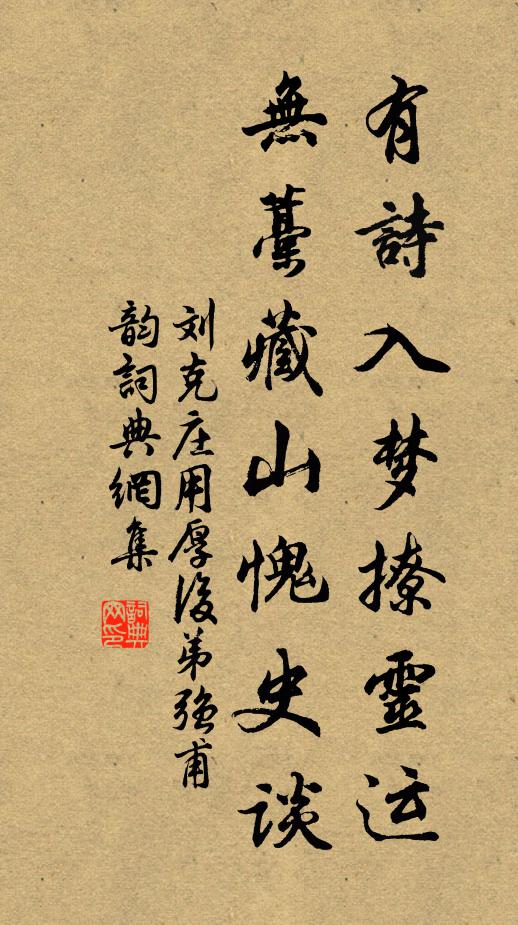 有詩入梦撩靈运
無藁藏山愧史谈
刘克庄用厚後弟強甫
韵詞典網集
詞典
网印